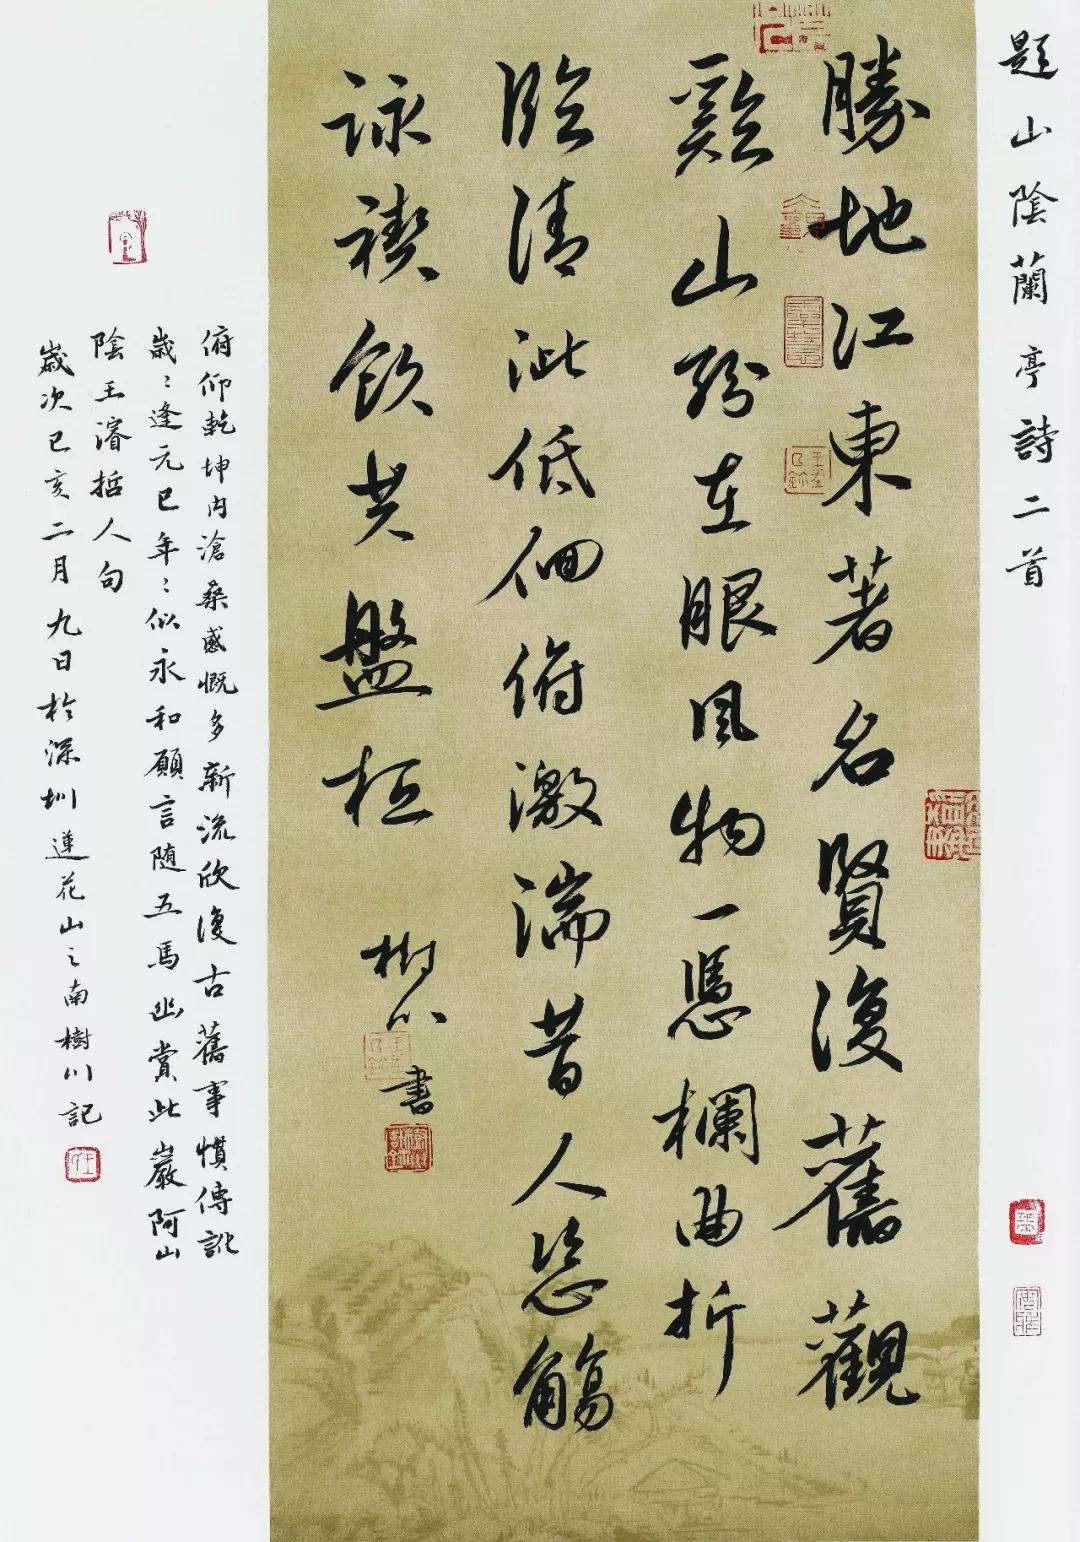 題山陰蘭亭詩二首
勝地江東著名賢復舊觀
谿山紛在眼風物一憑欄曲折
臨清泚低佪俯激湍昔人恣觴
詠禊飲共盤桓
樹川書
俯仰乾坤內滄桑感慨多新流欣復古舊事慣傳訛
歲〻逢元巳年〻似永和願言隨五馬幽賞此巖阿山
陰王濬哲人句
歲次己亥二月九日於深圳蓮花山之南樹川記